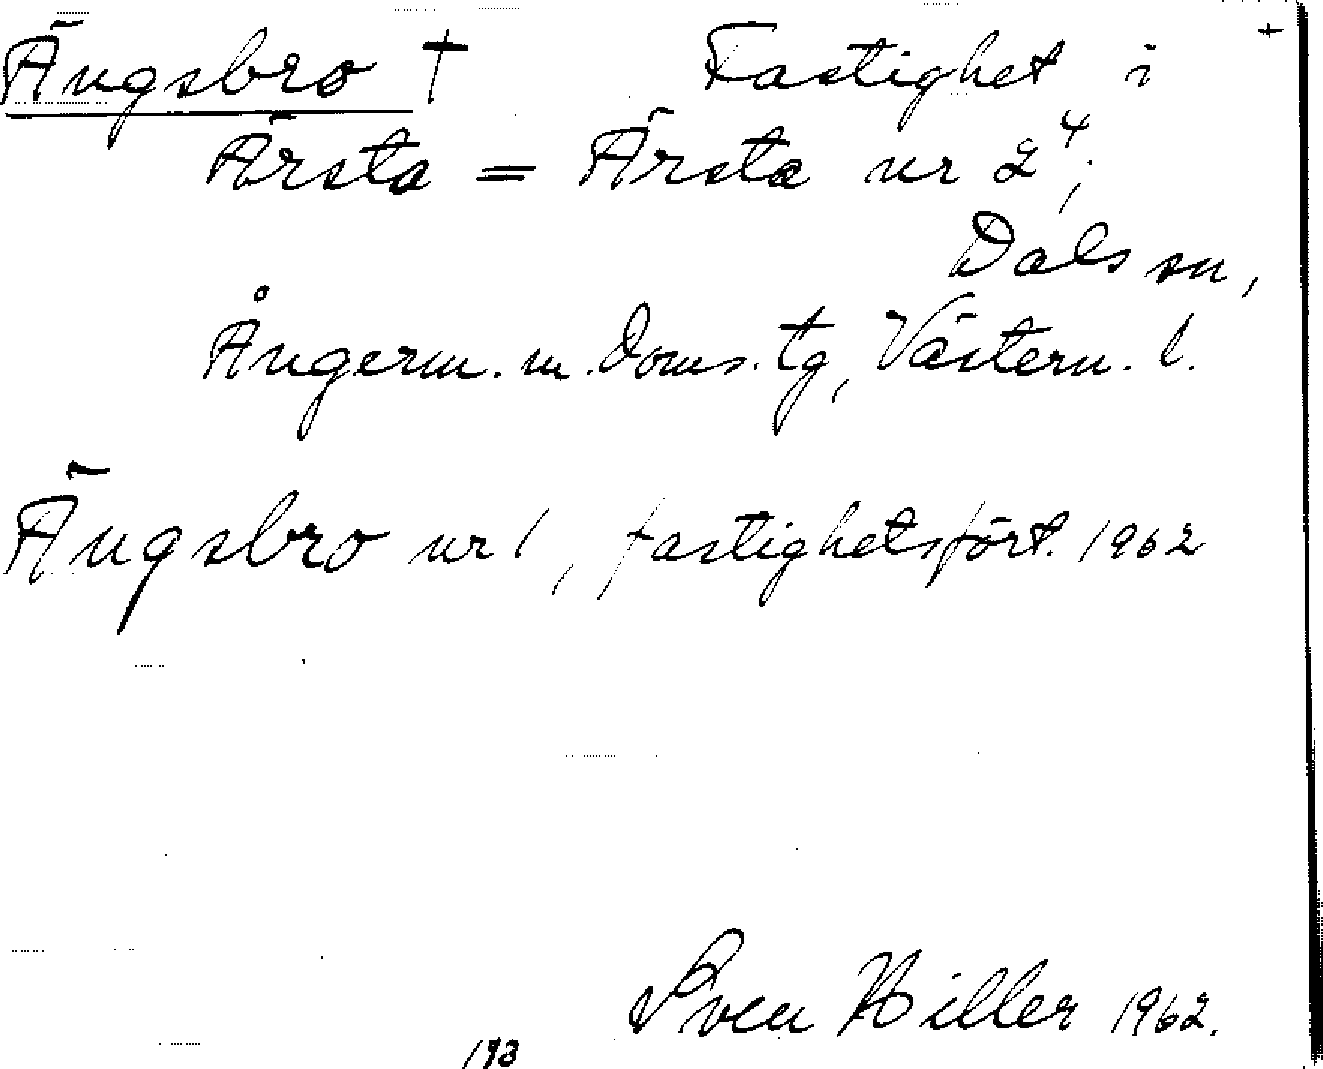 Ängsbro † Fastighet i +
Ärsta = Ärsta nr 2⁴;
Dals sn,
Ångerm. m. doms. tg, Västern. l.
Ängsbro nr 1, fastighetsfört. 1962
Sven Hiller 1962.
193